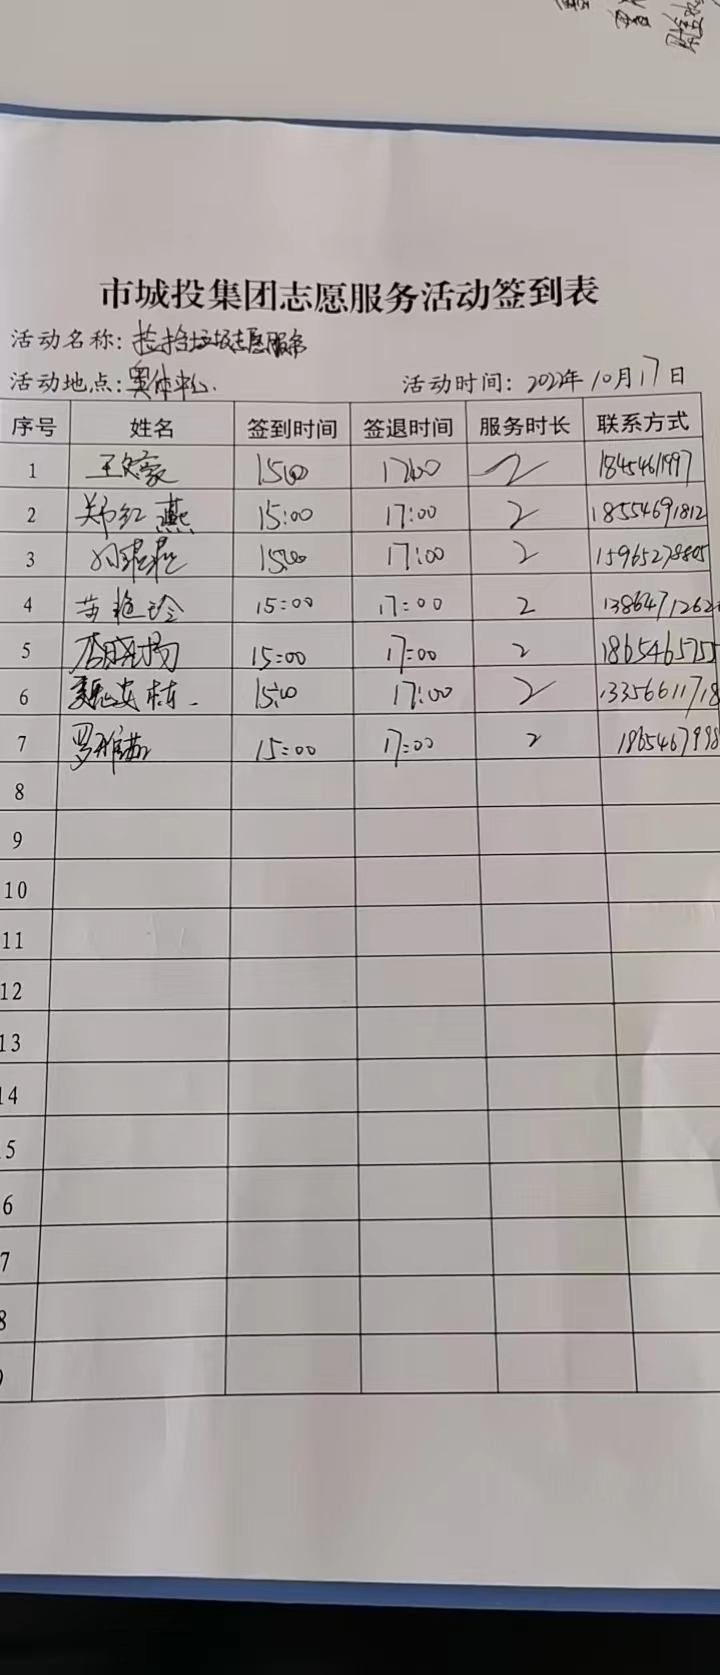 市城投集团志愿服务活动签到表
活动名称：捡拾垃圾志愿服务
活动地点：奥体中心. 活动时间：2022年10月17日
序号 姓名 签到时间 签退时间 服务时长 联系方式
1 15:00 17:00 2 1845461997
2 郑红燕 15:00 17:00 2 18554691812
3 15:00 17:00 2 15965278805
4 苗艳玲 15:00 17:00 2 1386471262
5 李晓杨 15:00 17:00 2 1865465755
6 魏安栋 15:00 17:00 2 13356611718
7 罗雅茹 15:00 17:00 2 1865467998
8
9
10
11
12
13
14
5
6
7
8